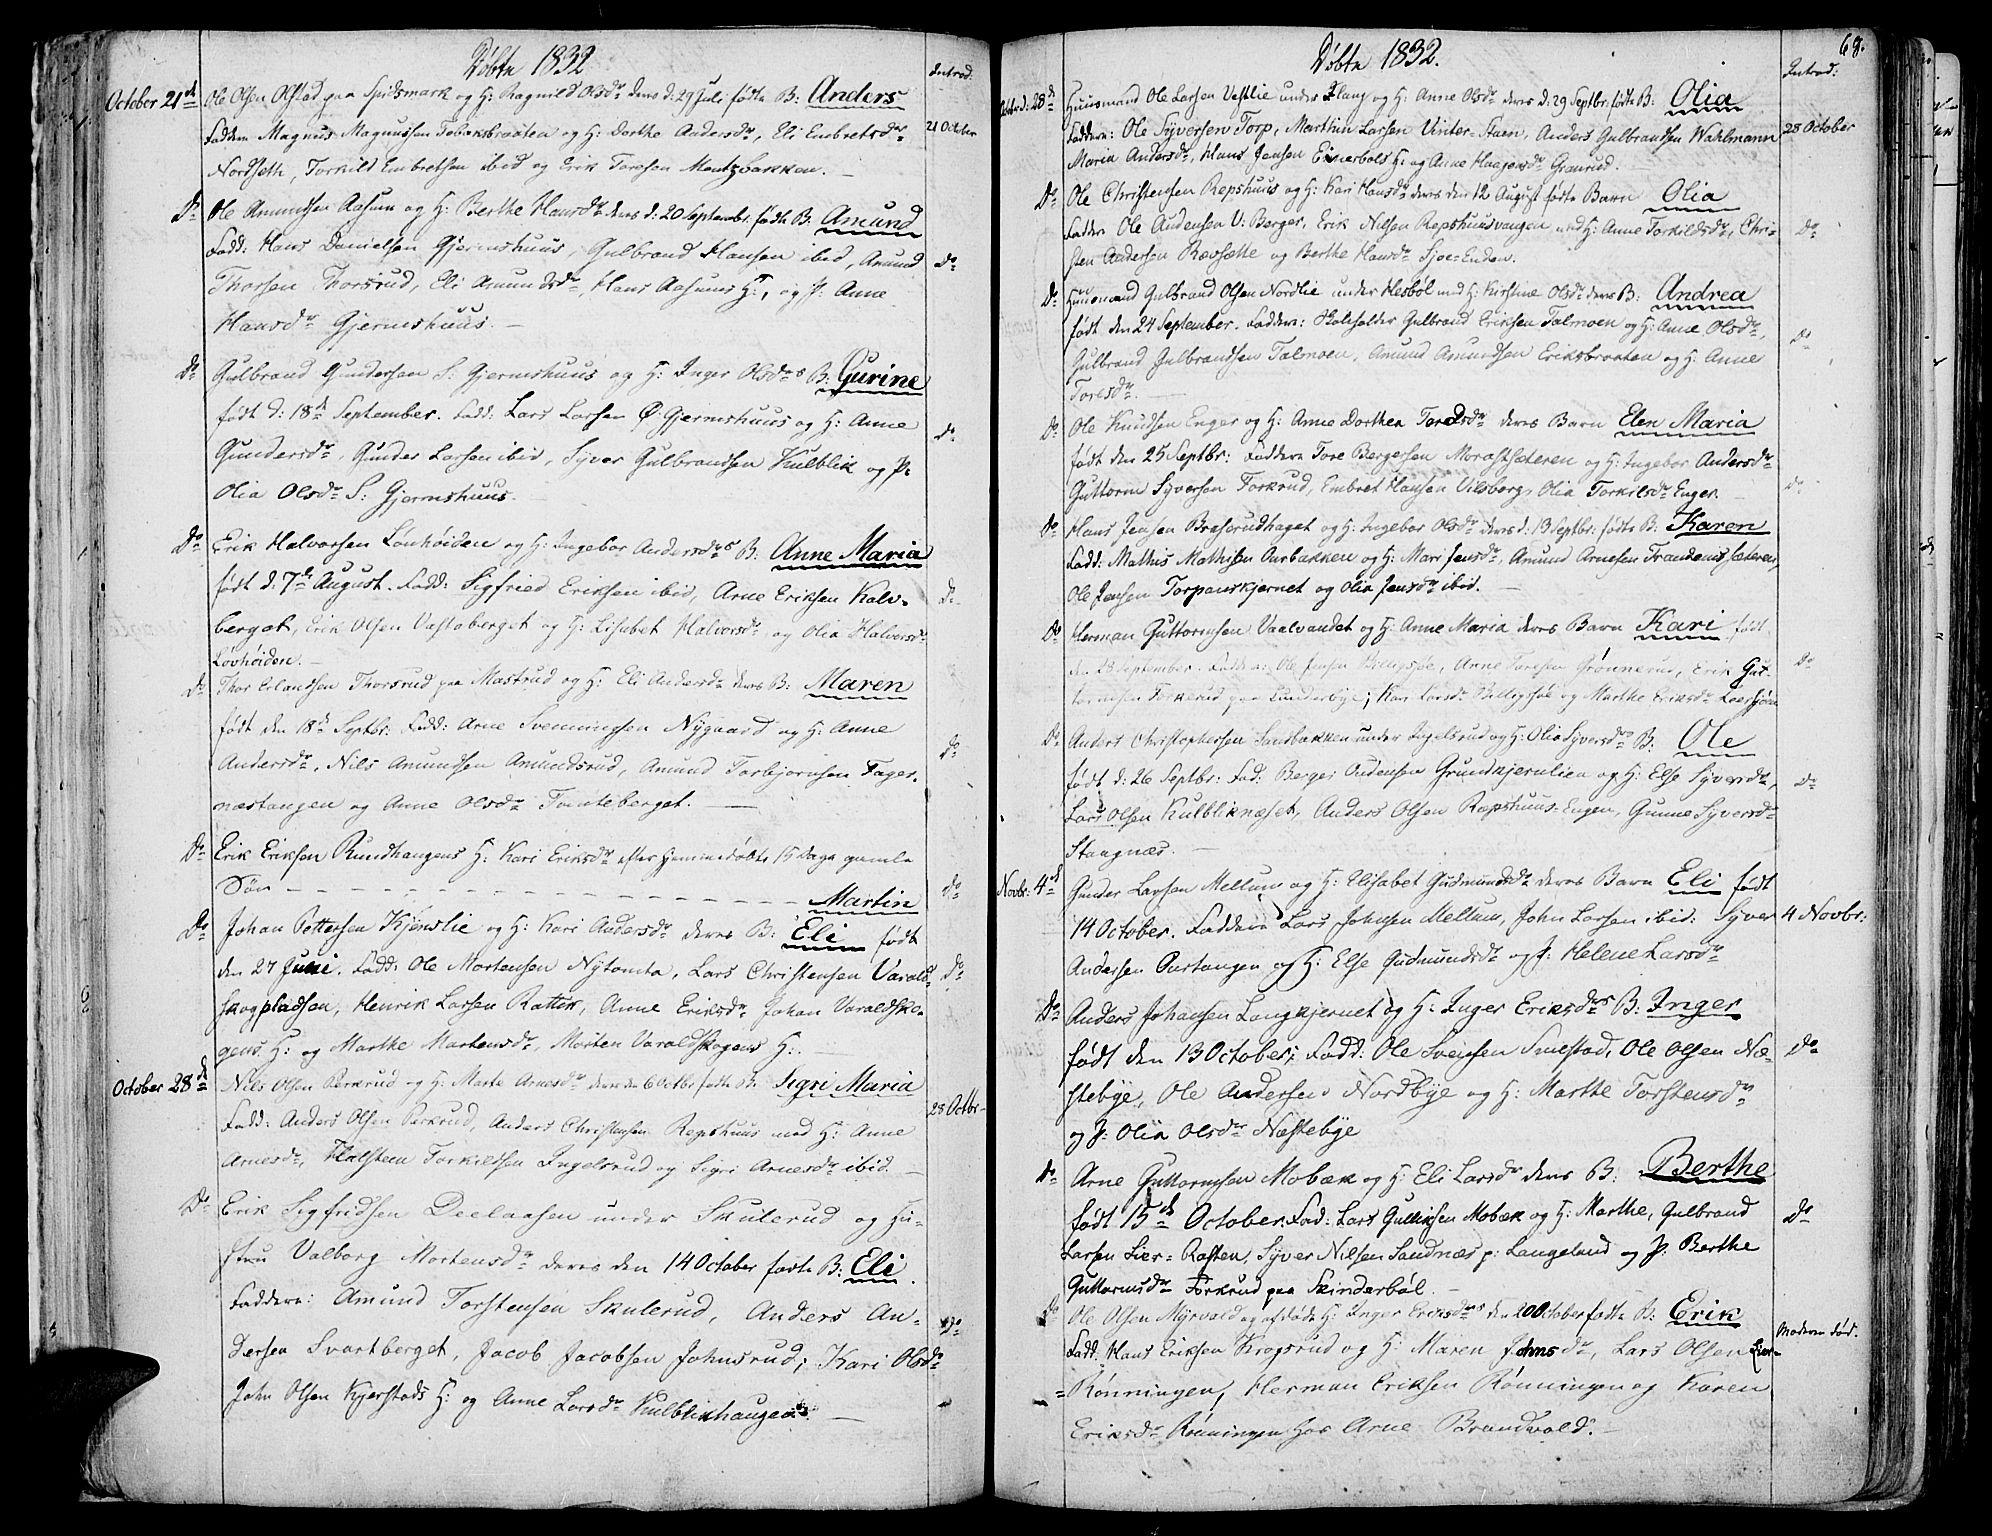 Døbte 1832
Introd.
October 21de Ole Olsen Ofstad paa Spidsmark og H: Ragnild Olsdr deres d: 29 Juli fødte B: Anders
Faddere Magnus Magnussen Tobaksbraaten og H: Dorthe Andersdr, Eli Embretsdr 21 October
Nordseth, Torkild Embretsen ibid og Erik Toresen Mentzbakken.
Do Ole Amundsen Aasum og H: Berthe Hansdr deres d: 20 Septembr. fødte B. Amund
Fadd: Hans Danielsen Gjermshuus, Gulbrand Hansen ibid, Amund Do
Thorsen Thorsrud, Eli Amundsdr, Hans Aasums H:, og P: Anne
Hansdr Gjermshuus.
Do Gulbrand Gundersen S: Gjermshuus og H: Inger Olsdrs B: Gurine
født d: 18de September. Fadd: Lars Larsen Ø: Gjermshuus og H: Anne
Gundersdr, Gunder Larsen ibid, Syver Gulbrandsen Kulblik og P: Do
Olia Olsdr S: Gjermshuus.
Do Erik Halvorsen Lovhøiden og H: Ingebor Andersdrs B: Anne Maria
født d: 7de August. Fadd: Sigfried Eriksen ibid, Arne Eriksen Kalv- Do
berget, Erik Olsen Vastaberget og H: Lisabet Halvorsdr og Olia Halvorsdr
Lovhøiden.
Do Thor Erlandsen Thorsrud paa Mastrud og H: Eli Andersdr deres B: Maren
født den 18de Septbr: Fadd: Arne Svenningsen Nygaard og H: Anne
Andersdr, Nils Amundsen Amundsrud, Amund Torbjørnsen Fager- Do
næstangen og Anne Olsdr Tønteberget.
Do Erik Eriksen Rundhaugens H: Kari Eriksdr efter hjemmedøbte 15 Dage gamle
Søn Martin Do
Do Johan Pettersen Kjenslie og H: Kari Andersdr deres B: Eli født
den 27 Juni. Fadd: Ole Mortensen Nytomta, Lars Christensen Varald- Do
skogpladsen, Henrik Larsen Rattik, Anne Eriksdr Johan Varaldsko-
gens H: og Marthe Mortensdr, Morten Varaldskogens H:.
October 28de Nils Olsen Perkrud og H: Marte Arnesdr deres den 6 Octbr fødte B: Sigri Maria
Fadd: Anders Olsen Perkrud, Anders Christensen Repshuus med H: Anne 28 Octbr
Arnesdr, Halsten Torkildsen Ingelsrud og Sigri Arnesdr ibid.
Do Erik Sigfridsen Deelaasen under Skulerud og Hu-
stru Valborg Mortensdr deres den 14 October fødte B: Eli.
Faddere: Amund Torstensen Skulerud, Anders An-
dersen Svartberget, Jacob Jacobsen Johnsrud, Kari Olsdr Do
John Olsen Kjerstads H: og Anne Larsdr Kulblikhaugen.
Døbte 1832.
68.
Introd:
Octod: 28de Huusmand Ole Larsen Vestlie under Flang og H: Anne Olsdr deres d: 29 Septbr. fødte B: Olia
Faddere: Ole Syversen Torp, Marthin Larsen Vinter-Staen, Anders Gulbrandsen Wahlmann 28 October
Maria Andersdr, Hans Jensen Einerbols H: og Anne Haagensdr Granrud.
Do Ole Christensen Repshuus og H: Kari Hansdr deres den 12 August fødte Barn Olia
Faddere Ole Audensen V: Berger, Erik Nilsen Repshuusvangen med H: Anne Torkildsdr, Chri- Do
sten Andersen Ravsætte og Berthe Hansdr Sjøe-Enden.
Do Huusmand Gulbrand Olsen Nordlie under Hesbøl med H: Kirstine Olsdr deres B: Andrea
født den 24 September. Faddere: Skoleholder Gulbrand Eriksen Talmoen og H: Anne Olsdr,
Gulbrand Gulbrandsen Talmoen, Amund Amundsen Eriksbraaten og H: Anne Do
Toresdr.
Do Ole Knudsen Enger og H: Anne Dorthea Toresdr deres Barn Elen Maria
født den 25 Septbr: Faddere Tore Bergersen Morastsæteren og H: Ingebor Andersdr
Guttorm Syversen Forkrud, Embret Hansen Vilsberg, Olia Torkilsdr Enger. Do
Do Hans Jensen Braserudhaget og H: Ingebor Olsdr deres d: 13 Septbr: fødte B: Karen
Fadd: Mathis Mathisen Aurbakken og H: Mari Jensdr, Amund Arnesen Frandemssæteren,
Ole Jensen Torpanskjernet og Olia Jensdr ibid.
Do Herman Guttormsen Vaalvandet og H: Anne Maria deres Barn Kari født
den 28 September. Faddere: Ole Jensen, Anne Toresen Grønnerud, Erik Gut- Do
tormsen Forkerud paa Sunderbye, Kari Larsdr og Marthe Eriksdr
Do Anders Christophersen Sandbakken under Ingelsrud og H: Olia Syversdrs B: Ole
født d: 26 Septbr: Fad: Berger Audensen Grundkjernlien og H: Else Syversdr, Do
Lars Olsen Kulbliknæset, Anders Olsen Repshuus-Engen, Gunne Syversdr
Stangnæs.
Novbr: 4de Gunder Larsen Mellum og H: Elisabet Gudmundsdr deres Barn Eli født
14 October. Faddere Lars Johnsen Mellum, John Larsen ibid. Syver 4 Novbr:
Andersen Partangen og H: Else Gudmundsdr og P: Helene Larsdr
Do Anders Johansen Langkjernet og H: Inger Eriksdrs B: Inger
født den 13 October; Fadd: Ole Svensen Smestad, Ole Olsen Næ- Do
stebye, Ole Andersen Nordbye og H: Marthe Torstensdr
og P: Olia Olsdr Næstebye
Do Arne Guttormsen Mobæk og H: Eli Larsdr deres B: Berthe
født 15de October. Fad: Lars Gulliksen Mobæk og H: Marthe, Gulbrand Do
Larsen Lier-Rasten, Syver Nilsen Sandnæs p: Langeland og P: Berthe
Guttormsdr Forkrud paa Skinderbøl.
Do Ole Olsen Myrvold og afdøde H: Inger Eriksdrs den 20 October fødte B: Erik
Fadd. Hans Eriksen Krogsrud og H: Maren Johnsdr, Lars Olsen Moderen død.
Rønningen, Herman Eriksen Rønningen og Karen
Eriksdr Rønningen hos Arne Brandvold.